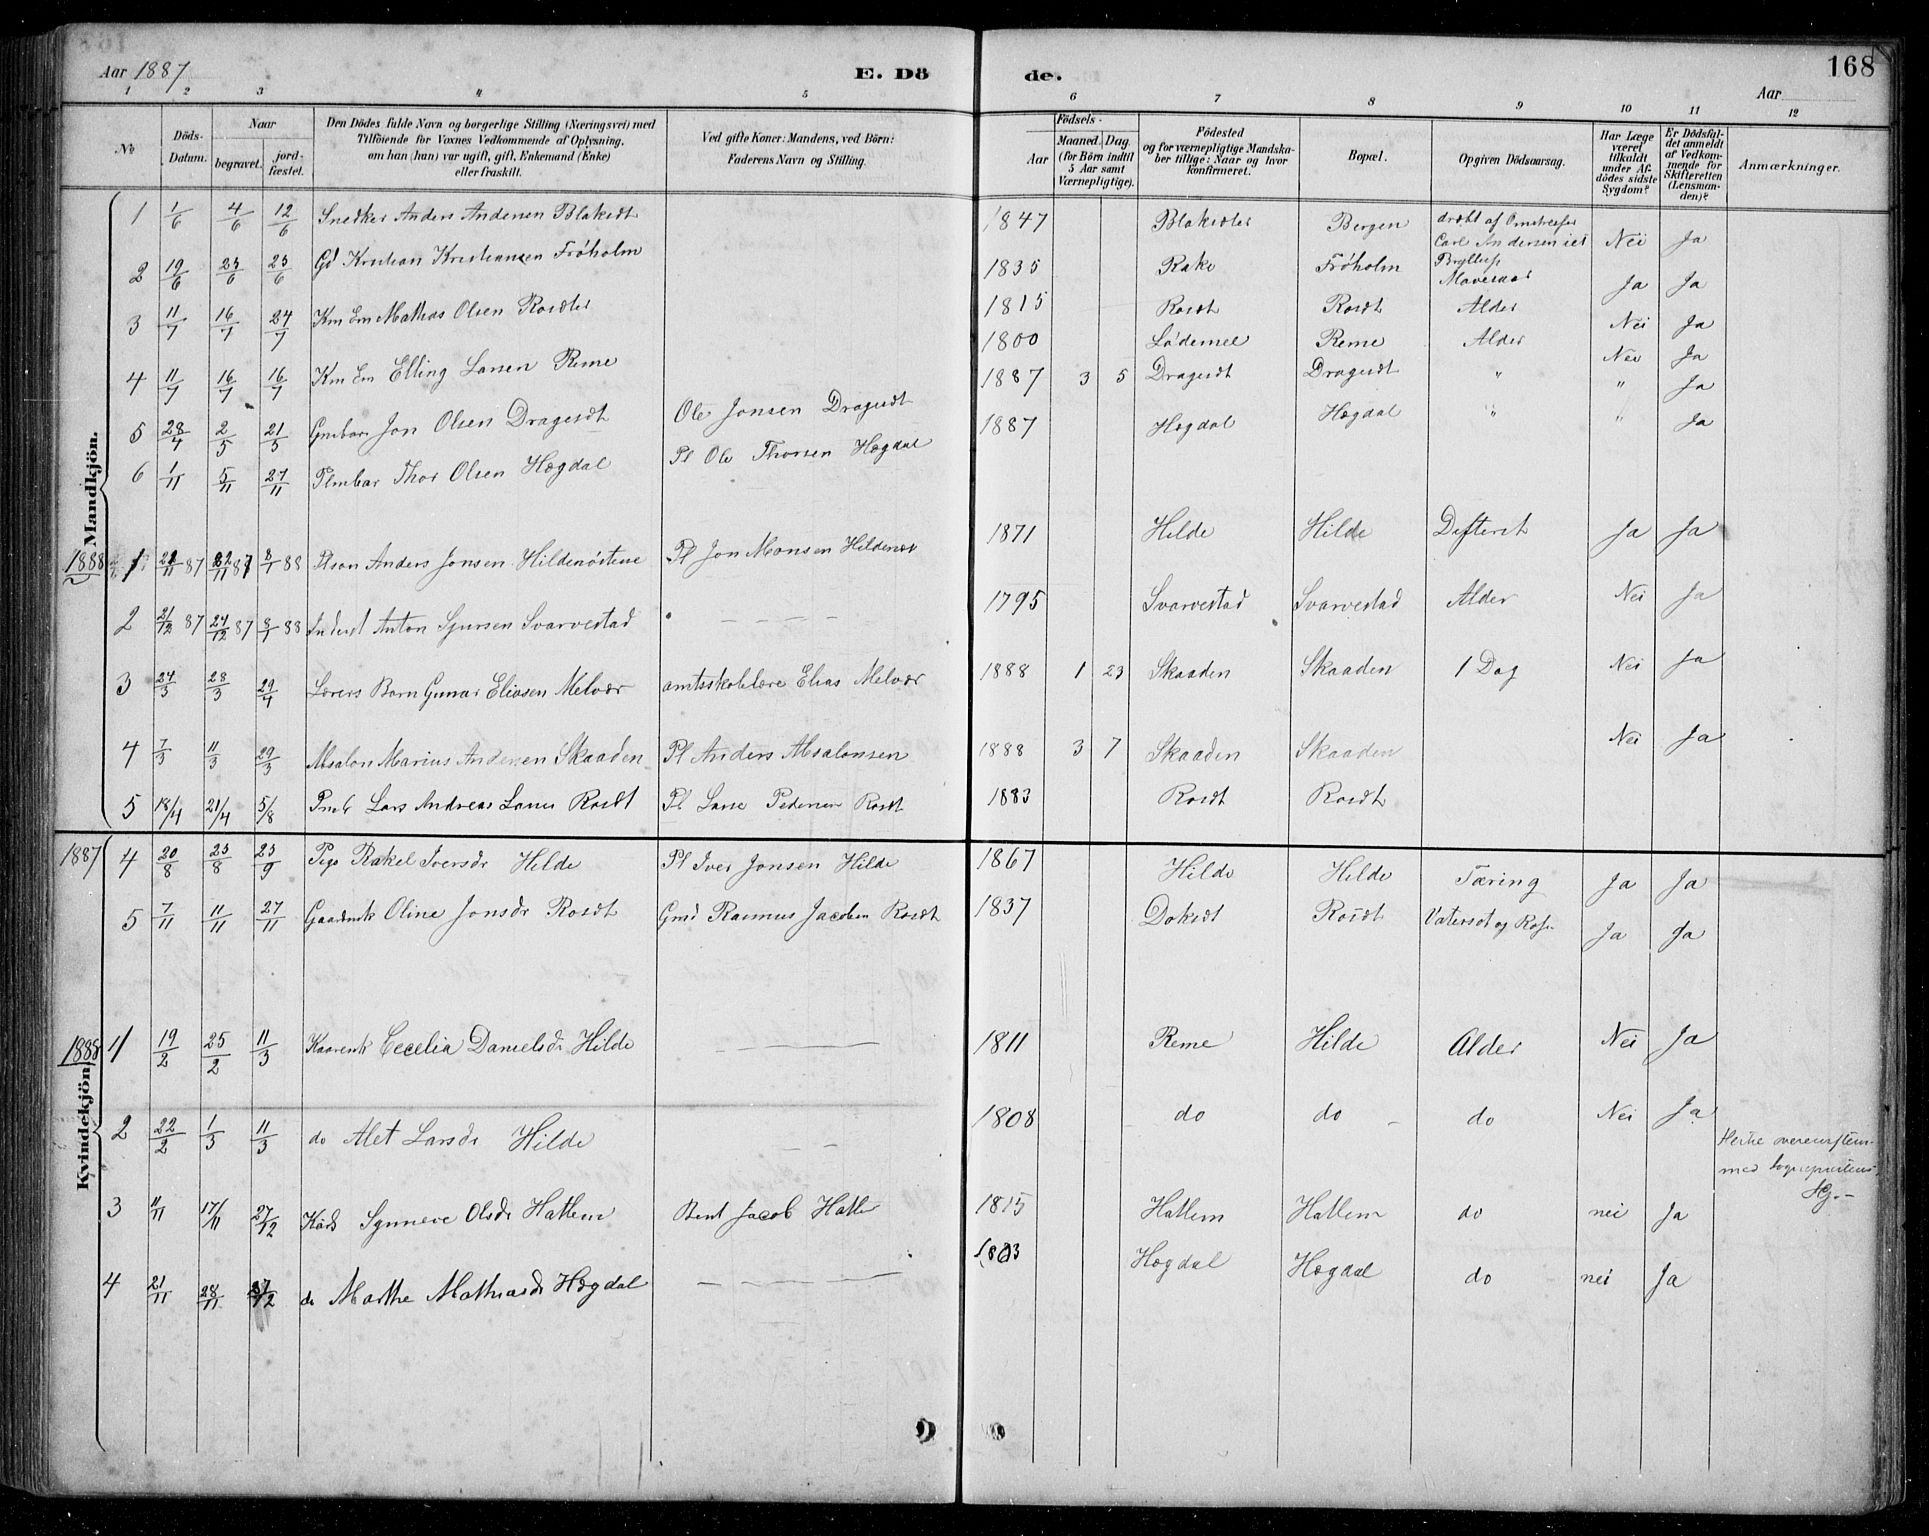 Aar 1887 E. Dö de. 168
Aar
1 2 3 4 5 6 7 8 9 10 11 12
No
Döds-Datum.
Naar
begravet.
jord-fæstet.
Den Dödes fulde Navn og borgerlige Stilling (Næringsvei) med
Tilföiende for Voxnes Vedkommende af Oplysning,
om han (hun) var ugift, gift, Enkemand (Enke)
eller fraskilt.
Ved gifte Koner: Mandens, ved Börn:
Faderens Navn og Stilling.
Födsels-
Aar
Maaned. Dag.
(for Börn indtil
5 Aar samt
Værnepligtige).
Födested
og for værnepligtige Mandska-
ber tillige: Naar og hvor
konfirmeret.
Bopæl.
Opgiven Dödsaarsag.
Har Læge
været
tilkaldt
under Af-
dödes sidste
Sygdom?
Er Dödsfal-
det anmeldt
af Vedkom-
mende for
Skifteretten
(Lensman-
den)?
Anmærkninger.
Mandkjön.
1 1/6 4/6 12/6 Snedker Anders Andersen Blaksdt 1847 Blaksdter Bergen dræbt af Carl Andersen i et Bryllup Nei Ja
2 19/6 23/6 23/6 Gd Kristian Kristiansen Fröholm 1835 Rake Fröholm Mavesaar Ja Ja
3 11/7 16/7 24/7 Km Em Mathias Olsen Rosdter 1815 Rosdt Rosdt Alder Nei Ja
4 11/7 16/7 16/7 Km Em Elling Larsen Reme 1800 Lödemel Reme Alder Nei Ja
5 28/4 2/5 21/5 Gmbar Jon Olsen Dragesdt Ole Jonsen Dragesdt 1887 3 5 Dragesdt Dragesdt " " Ja
6 1/11 5/11 27/11 Plmbar Thor Olsen Hægdal Pl Ole Thorsen Hægdal 1887 Hægdal Hægdal " " Ja
1888
1 22/11 87 8/1 88 Plson Anders Jonsen Hildenöstene Pl Jon Monsen Hildenes 1871 Hilde Hilde Difterit Ja Ja
2 21/12 87 27/12 87 8/1 88 Inderst Anton Sjursen Svarvestad - - - - 1795 Svarvestad Svarvestad Alder Nei Ja
3 24/3 28/3 29/4 Lærers Barn Gunnar Eliasen Melvær amtsskolelære Elias Melvær 1888 1 23 Skaaden Skaaden 1 Dag Nei Ja
4 7/3 11/3 29/3 Absalon Marius Andersen Skaaden Pl Anders Absalonsen 1888 3 7 Skaaden Skaaden Nei Ja
5 18/4 21/4 5/8 Pmb Lars Andreas Larsen Rosdt Pl Lars Pedersen Rosdt 1883 Rosdt Rosdt
1887
4 20/8 23/8 23/9 Pige Rakel Iversdr Hilde Pl Iver Jonsen Hilde 1867 Hilde Hilde Tæring Ja Ja
5 7/11 11/11 27/11 Gaardmk Oline Jonsdr Rosdt Gmd Rasmus Jacobsen Rosdt 1837 Doksdt Rosdt Vatersot og Rose Ja Ja
1888
Kvindekjön
1 19/2 25/2 11/3 Kaarenk Cecelia Danielsdr Hilde — — — 1811 Reme Hilde Alder Nei Ja
2 22/2 1/3 11/3 do Alet Larsdr Hilde — — 1808 do do do Nei Ja
3 11/11 17/11 27/12 Kård Synneve Olsdr Hatlem Bent Jacob Hatle 1815 Hatlem Hatlem do nei Ja
4 21/11 28/11 27/12 do Marthe Mathiasdr Hægdal — — — 1803 Hægdal Hægdal do nei Ja
med sogneprestens
HG.-